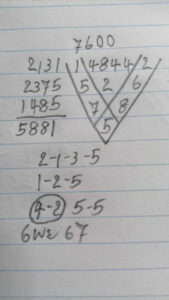 7600
2131 1 4 8 4 4 2
2375 5 2 6
1485 7 8
5881 5
2-1-3-5
1-2-5
4-2 5-5
67